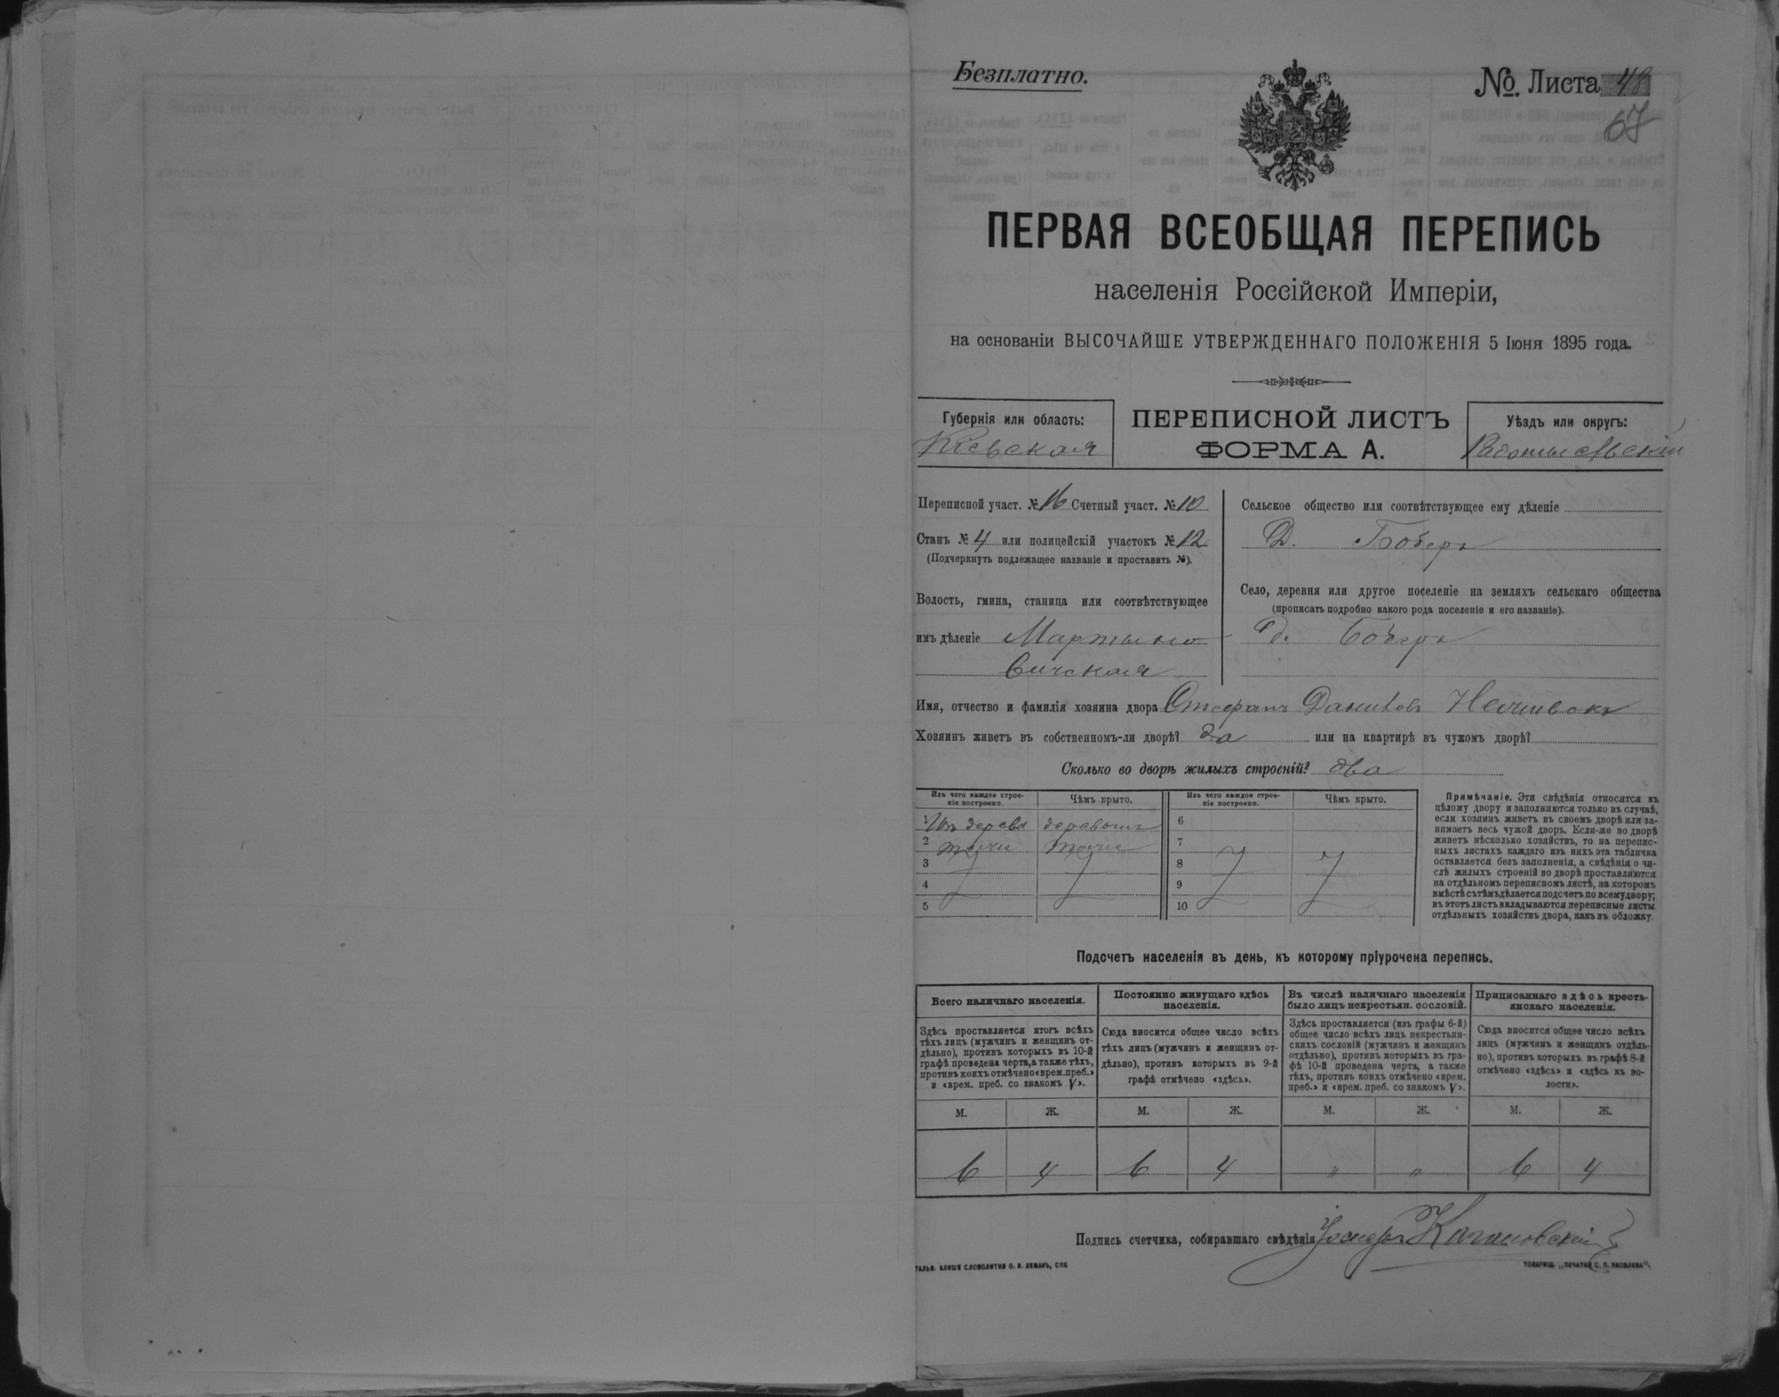 Безплатно.
№. Листа 48
67
ПЕРВАЯ ВСЕОБЩАЯ ПЕРЕПИСЬ
населенія Россійской Имперіи,
на основаніи ВЫСОЧАЙШЕ УТВЕРЖДЕННАГО ПОЛОЖЕНІЯ 5 Іюня 1895 года.
Губернія или область:
Кіевская
ПЕРЕПИСНОЙ ЛИСТЪ
ФОРМА А.
Уѣздъ или округъ:
Радомысльскій
Переписной участ. № 16 Счетный участ. № 10
Станъ № 4 или полицейскій участокъ № 12
(Подчеркнуть подлежащее названіе и проставить №).
Волость, гмина, станица или соотвѣтствующее
имъ дѣленіе Мартыно
вичская
Сельское общество или соотвѣтствующее ему дѣленіе
Д. Боберъ
Село, деревня или другое поселеніе на земляхъ сельскаго общества
(прописать подробно какого рода поселеніе и его названіе).
д. Боберъ
Имя, отчество и фамилія хозяина двора Стефанъ Даниловъ
Хозяинъ живетъ въ собственномъ-ли дворѣ? да или на квартирѣ въ чужомъ дворѣ?
Сколько во дворѣ жилыхъ строеній? два
Изъ чего каждое строе-
ніе построено.
Чѣмъ крыто.
Изъ чего каждое строе-
ніе построено.
Чѣмъ крыто.
1 Изъ дерева деревомъ 6
2 7
3 8
4 9
5 10
Примѣчаніе. Эти свѣдѣнія относятся къ
цѣлому двору и заполняются только въ случаѣ,
если хозяинъ живетъ въ своемъ дворѣ или за-
нимаетъ весь чужой дворъ. Если-же во дворѣ
живетъ нѣсколько хозяйствъ, то на перепис-
ныхъ листахъ каждаго изъ нихъ эта табличка
оставляется безъ заполненія, а свѣдѣнія о чи-
слѣ жилыхъ строеній во дворѣ проставляются
на отдѣльномъ переписномъ листѣ, на которомъ
вмѣстѣ съ тѣмъ дѣлается подсчетъ по всему двору;
въ этотъ листъ вкладываются переписные листы
отдѣльныхъ хозяйствъ двора, какъ въ обложку.
Подсчетъ населенія въ день, къ которому пріурочена перепись.
Всего наличнаго населенія.
Здѣсь проставляется итогъ всѣхъ
тѣхъ лицъ (мужчинъ и женщинъ от-
дѣльно), противъ которыхъ въ 10-й
графѣ проведена черта, а также тѣхъ,
противъ коихъ отмѣчено «врем. преб.»
и «врем. преб. со знакомъ V».
Постоянно живущаго здѣсь
населенія.
Сюда вносится общее число всѣхъ
тѣхъ лицъ (мужчинъ и женщинъ от-
дѣльно), противъ которыхъ въ 9-й
графѣ отмѣчено «здѣсь».
Въ числѣ наличнаго населенія
было лицъ некрестьян. сословій.
Здѣсь проставляется (изъ графы 6-й)
общее число всѣхъ лицъ некрестьян-
скихъ сословій (мужчинъ и женщинъ
отдѣльно), противъ которыхъ въ гра-
фѣ 10-й проведена черта, а также
тѣхъ, противъ коихъ отмѣчено «врем.
преб.» и «врем. преб. со знакомъ V».
Приписаннаго здѣсь кресть-
янскаго населенія.
Сюда вносится общее число всѣхъ
лицъ (мужчинъ и женщинъ отдѣль-
но), противъ которыхъ въ графѣ 8-й
отмѣчено «здѣсь» и «здѣсь къ во-
лости».
М. Ж. М. Ж. М. Ж. М. Ж.
6 4 6 4 " " 6 4
Подпись счетчика, собиравшаго свѣдѣнія
ГАЛЬВ. КЛИШЕ СЛОВОЛИТНИ О. И. ЛЕМАНЪ, СПБ
ТОВАРИЩ. „ПЕЧАТНЯ С. П. ЯКОВЛЕВА".